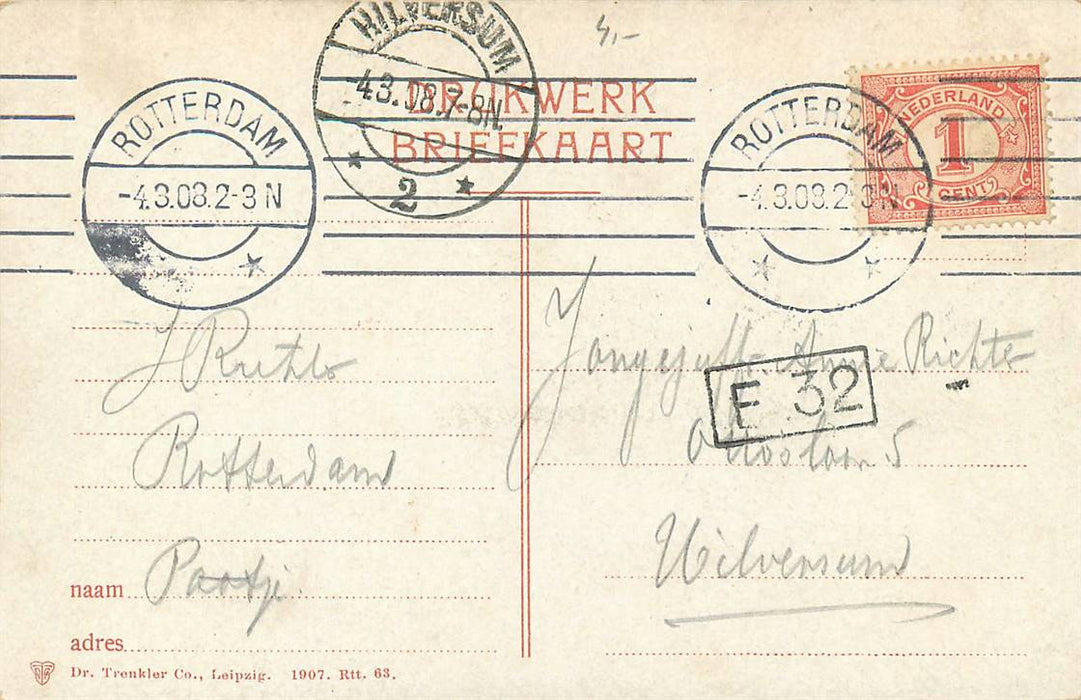 4,-
HILVERSUM
-4.3.08.7-8N.
2
DRUKWERK
BRIEFKAART
ROTTERDAM
-4.3.08.2-3 N
ROTTERDAM
-4.3.08.2-3 N
NEDERLAND
1
CENT
J
Rotterdam
naam
adres
Dr. Trenkler Co., Leipzig. 1907. Rtt. 63.
Jongejuffr. Annie Richte
F 32
5
Hilversum